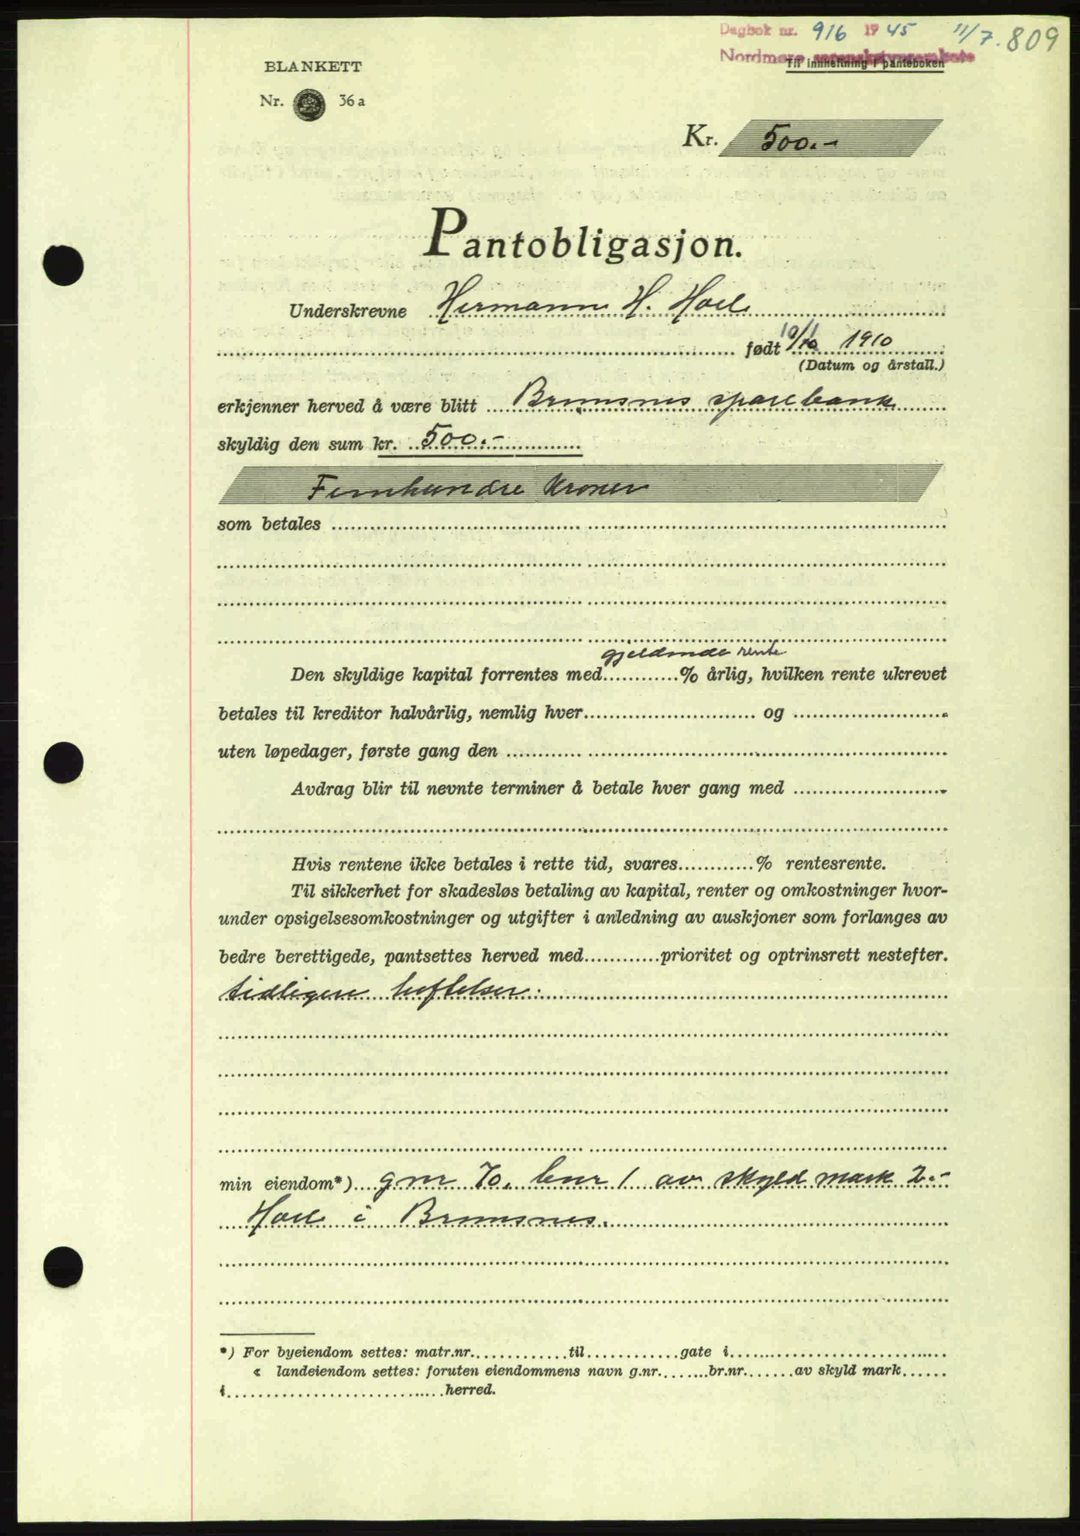 Dagbok nr. 916 1945 11/7. 809
Nordmøre sorenskriverembete
Til innheftning i panteboken
BLANKETT
Nr. 36 a
Kr. 500.-
Pantobligasjon.
Underskrevne Hermann H. Hoel
født 10/ 1910
(Datum og årstall.)
erkjenner herved å være blitt Bremsnes sparebank
skyldig den sum kr. 500.-
Femhundre Kroner
som betales
gjeldende rente
Den skyldige kapital forrentes med............% årlig, hvilken rente ukrevet
betales til kreditor halvårlig, nemlig hver............ og ............
uten løpedager, første gang den ............
Avdrag blir til nevnte terminer å betale hver gang med ............
Hvis rentene ikke betales i rette tid, svares............% rentesrente.
Til sikkerhet for skadesløs betaling av kapital, renter og omkostninger hvor-
under opsigelsesomkostninger og utgifter i anledning av auskjoner som forlanges av
bedre berettigede, pantsettes herved med............prioritet og optrinsrett nestefter.
tidligere heftelser.
min eiendom*) gnr 70. bnr 1 av skyld mark 2.-
Hoel i Bremsnes.
*) For byeiendom settes: matr.nr.............til............gate i............
« landeiendom settes: foruten eiendommens navn g.nr........br.nr.......av skyld mark......
i............herred.